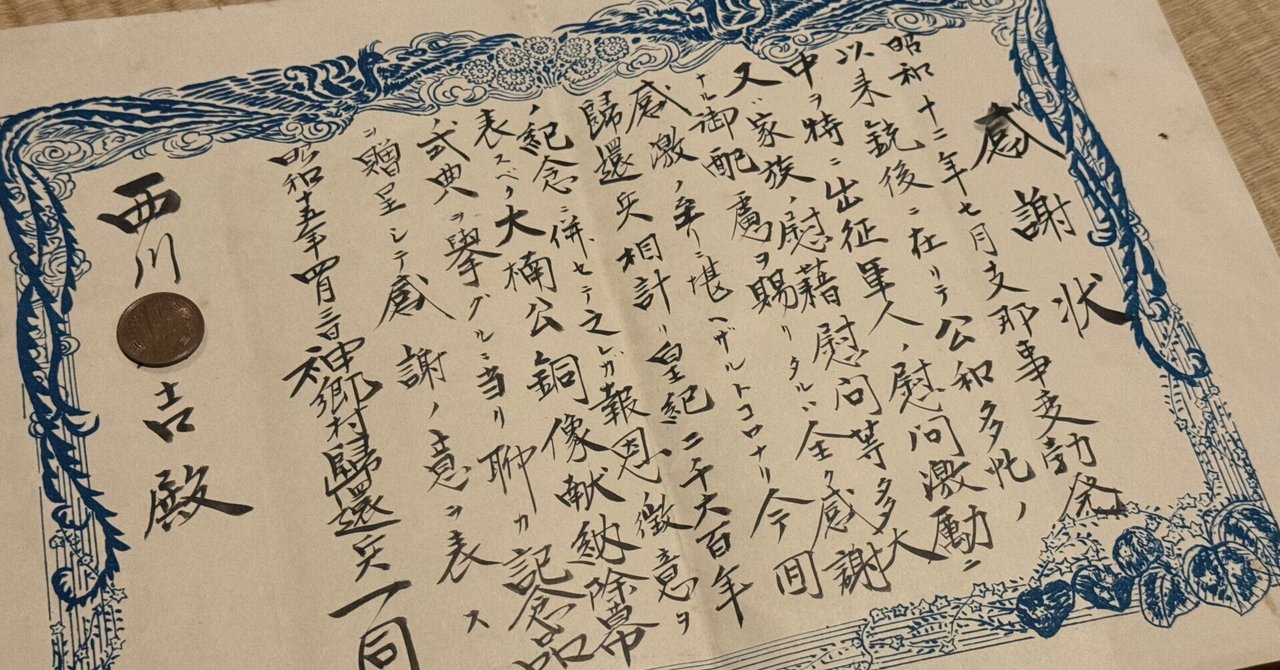 感謝状
昭和十二年七月支那事変勃発
以来銃後ニ在リテ公和多忙ノ
中ヲ特ニ出征軍人ノ慰問激励ニ
又ハ家族ノ慰藉慰問等多大
ナル御配慮ヲ賜リタルハ全ク感謝
感激ノ至リニ堪ヘザルトコロナリ今回
歸還兵相計リ皇紀二千六百年
ノ紀念ニ併セテ之レガ報恩ノ微意ヲ
表スベク大楠公銅像献納除幕
式典ヲ擧グルニ当リ聊カ記念品
ヲ贈呈シテ感謝ノ意ヲ表ス
昭和十五年四月三日
神郷村歸還兵一同
西川
吉殿